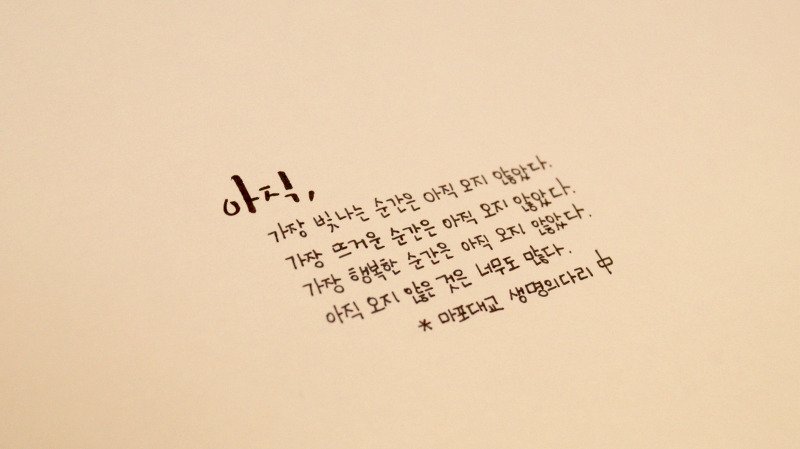 아직,
가장 빛나는 순간은 아직 오지 않았다.
가장 뜨거운 순간은 아직 오지 않았다.
가장 행복한 순간은 아직 오지 않았다.
아직 오지 않은 것은 너무도 많다.
* 마포대교 생명의다리 中